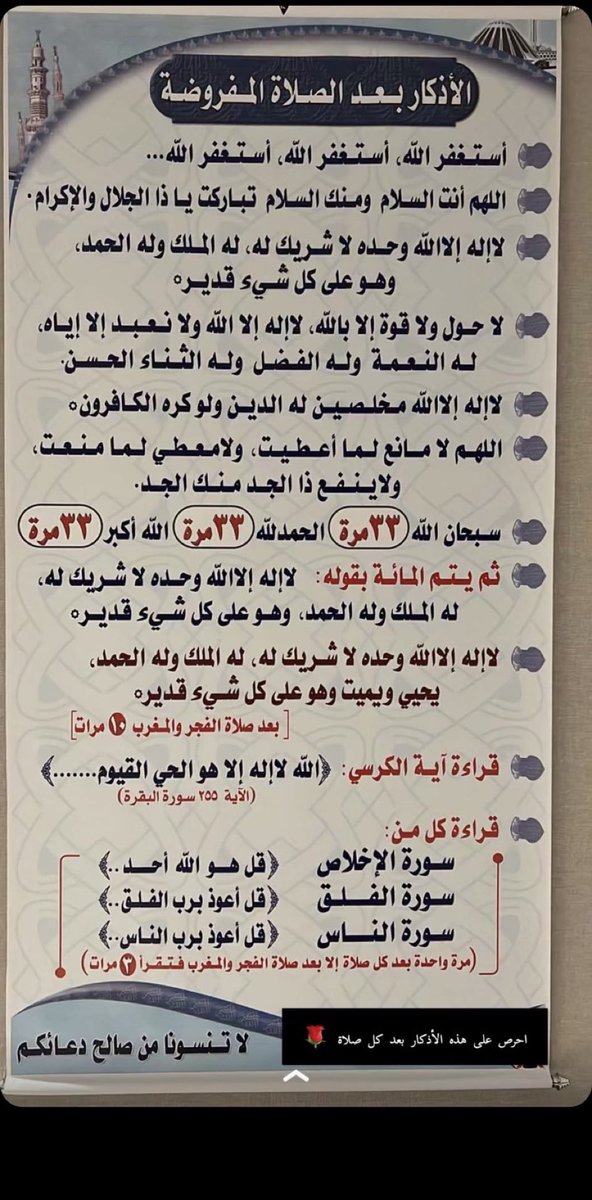 الأذكار بعد الصلاة المفروضة
أستغفر الله، أستغفر الله، أستغفر الله...
اللهم أنت السلام ومنك السلام تباركت يا ذا الجلال والإكرام.
لاإله إلاالله وحده لا شريك له، له الملك وله الحمد،
وهو على كل شيء قدير.
لا حول ولا قوة إلا بالله، لاإله إلا الله ولا نعبد إلا إياه،
له النعمة وله الفضل وله الثناء الحسن.
لاإله إلاالله مخلصين له الدين ولو كره الكافرون.
اللهم لا مانع لما أعطيت، ولامعطي لما منعت،
ولاينفع ذا الجد منك الجد.
سبحان الله ٣٣مرة الحمدلله ٣٣مرة الله أكبر ٣٣مرة
ثم يتم المائة بقوله: لاإله إلاالله وحده لا شريك له،
له الملك وله الحمد، وهو على كل شيء قدير.
لاإله إلاالله وحده لا شريك له، له الملك وله الحمد،
يحيي ويميت وهو على كل شيء قدير.
[بعد صلاة الفجر والمغرب ١٠ مرات]
قراءة آية الكرسي: ﴿الله لاإله إلا هو الحي القيوم.......﴾
(الآية ٢٥٥ سورة البقرة)
قراءة كل من:
سورة الإخلاص ﴿قل هو الله أحد..﴾
سورة الفلق ﴿قل أعوذ برب الفلق..﴾
سورة الناس ﴿قل أعوذ برب الناس..﴾
(مرة واحدة بعد كل صلاة إلا بعد صلاة الفجر والمغرب فتقرأ ٣ مرات)
احرص على هذه الأذكار بعد كل صلاة 🌹
لا تنسونا من صالح دعائكم